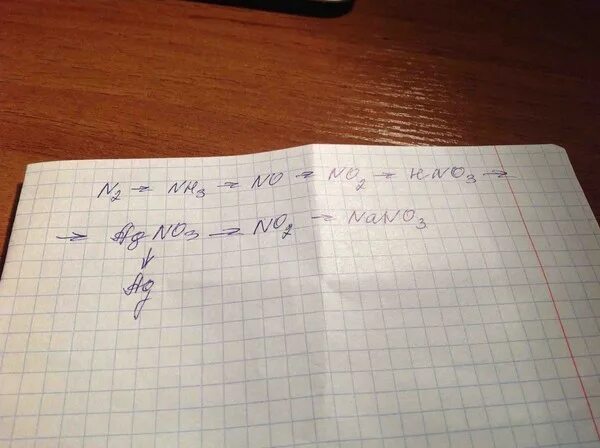 N₂ → NH₃ → NO → NO₂ → HNO₃ →
→ AgNO₃ → NO₂ → NaNO₃
↓
Ag